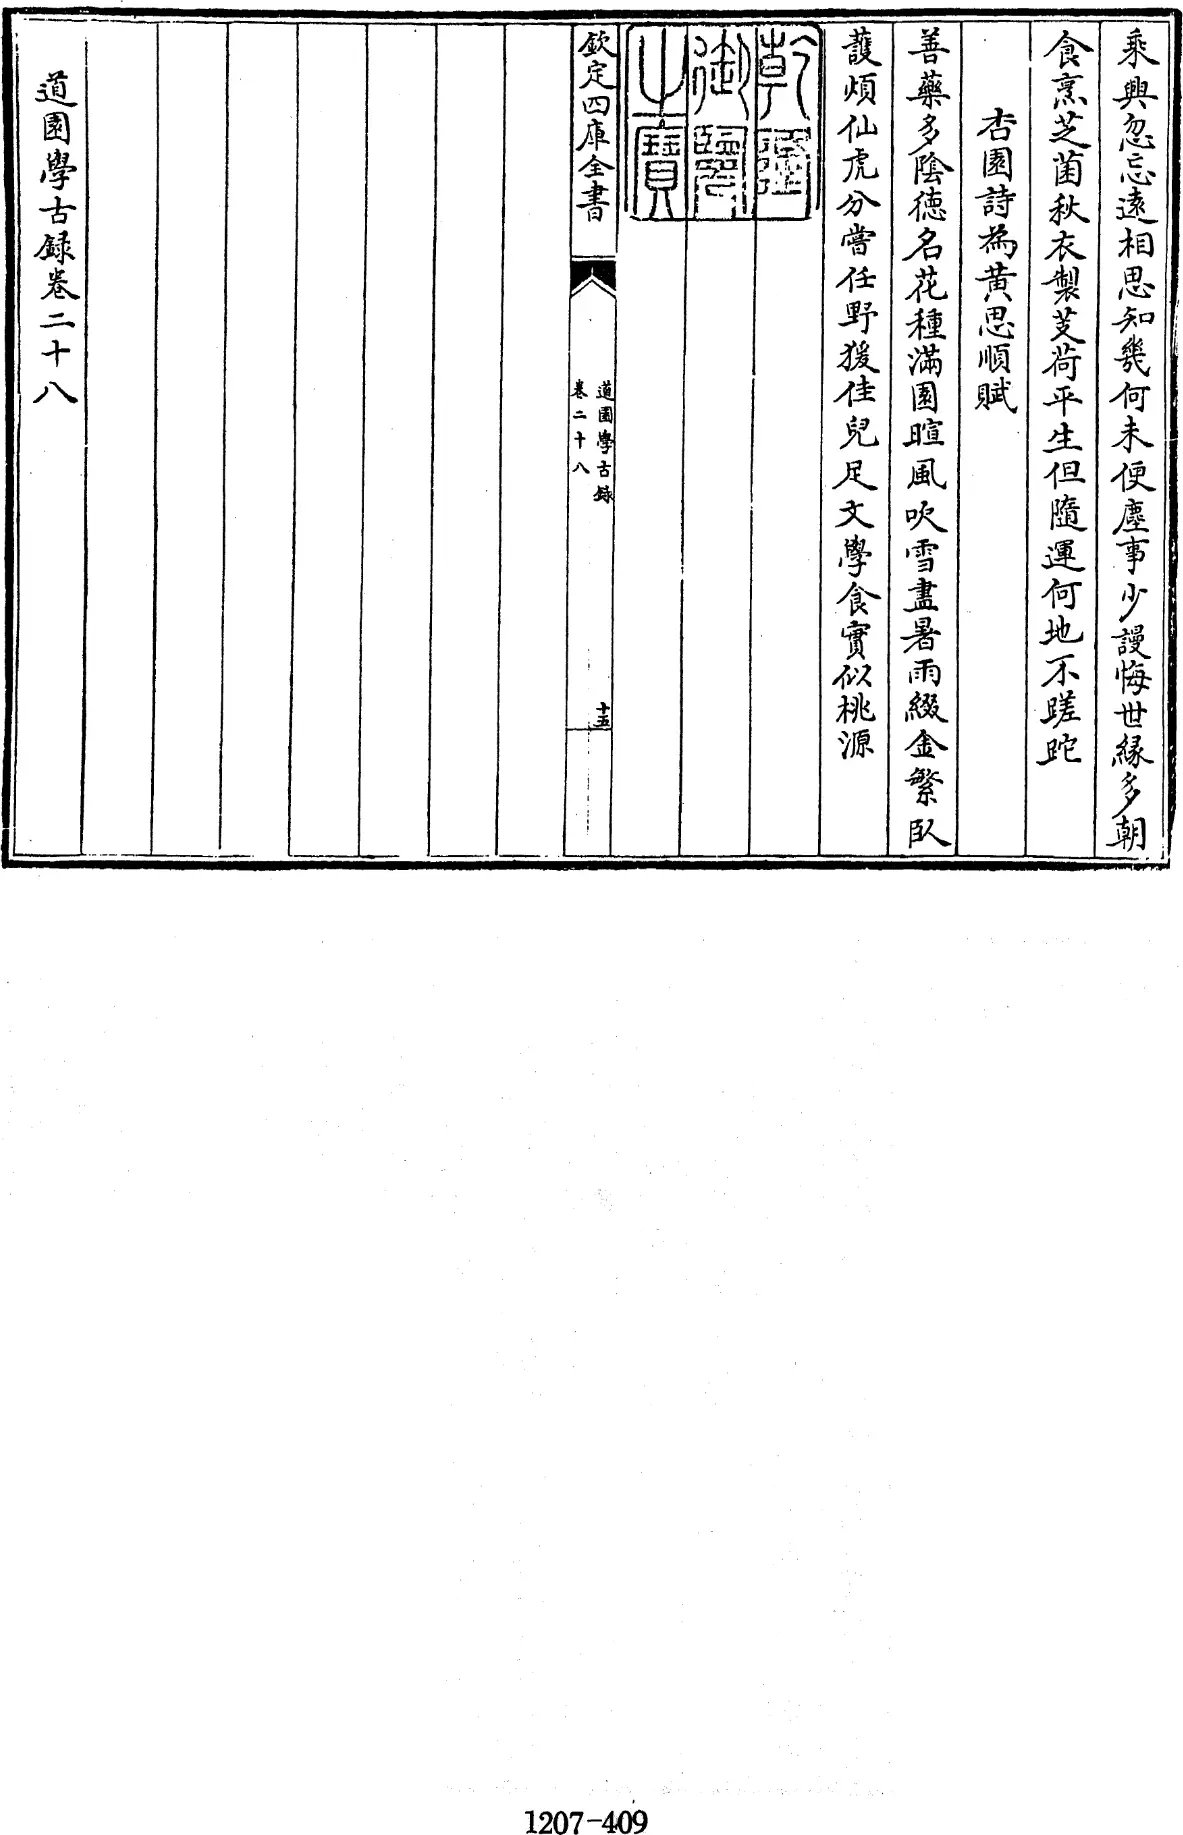 乘興忽忘遠相思知幾何未便塵事少謾悔世緣多朝
食烹芝菌秋衣製芰荷平生但隨運何地不蹉跎
杏園詩為黄思順賦
善藥多陰德名花種滿園暄風吹雪盡暑雨綴金繁臥
護煩仙虎分嘗任野猨佳兒足文學食實似桃源
乾隆
御覽
之寶
欽定四庫全書
道園學古録
卷二十八
十五
道園學古録卷二十八
1207-409